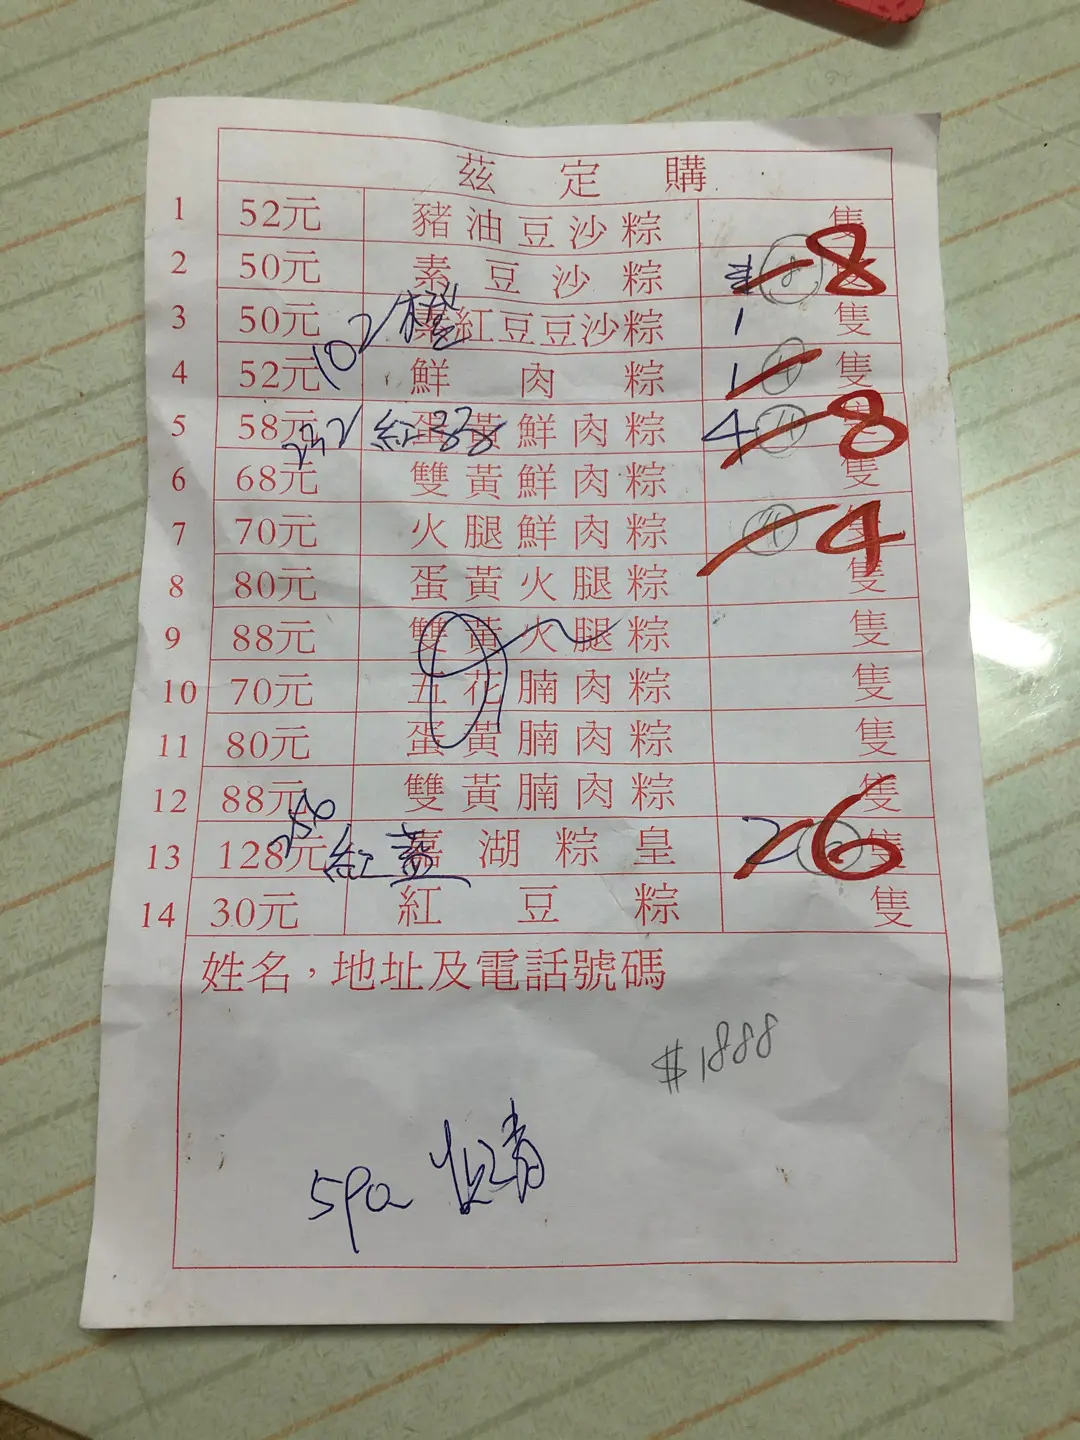 茲定購
1 52元 豬油豆沙粽 隻
2 50元 素豆沙粽 8
3 50元 紅豆豆沙粽 1 隻
102
4 52元 鮮肉粽 1 隻
5 58元 蛋黃鮮肉粽 4 8
232 紅
6 68元 雙黃鮮肉粽 隻
7 70元 火腿鮮肉粽 4 隻
8 80元 蛋黃火腿粽 隻
9 88元 雙黃火腿粽 隻
10 70元 五花腩肉粽 隻
11 80元 蛋黃腩肉粽 隻
12 88元 雙黃腩肉粽 隻
256 紅
13 128元 嘉湖粽皇 2 6 隻
14 30元 紅豆粽 隻
姓名，地址及電話號碼
$1888
spa